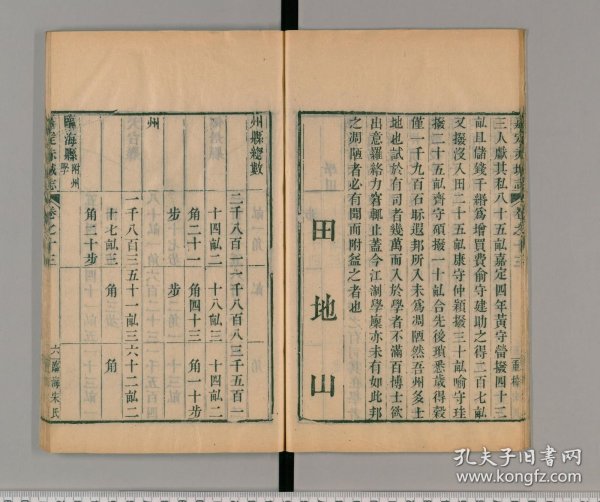 三人獻其私八十五畝嘉定四年黃守㽦撥四十三
畝且儲錢千緡為增買費俞守建助之得二百七畝
又撥沒入田二十五畝康守仲穎撥三十畝喻守珪
撥二十五畝齊守碩撥一十畝合先後瑣悉歲得穀
僅一千九百石眎遐邦所入未為凋陋然吾州多士
地也試於有司者幾萬而入於學者不滿百博士欲
出意羅絡力窘輒止蓋今江淛學廩亦未有如此邦
之凋陋者必有聞而附益之者也
田 地 山
州縣總數
二千八百二 六千八百八 三千五百一
十四畝二 十八畝三 十四畝二
角二十一 角四十三 角一十步
步 步
州
一千八百三 五十一畝 三六十二畝二
十七畝三 角 角
角二十步
臨海縣 附州學
嘉定赤城志 卷之十三
六 臨海朱氏
孔夫子旧书网
www.kongfz.com